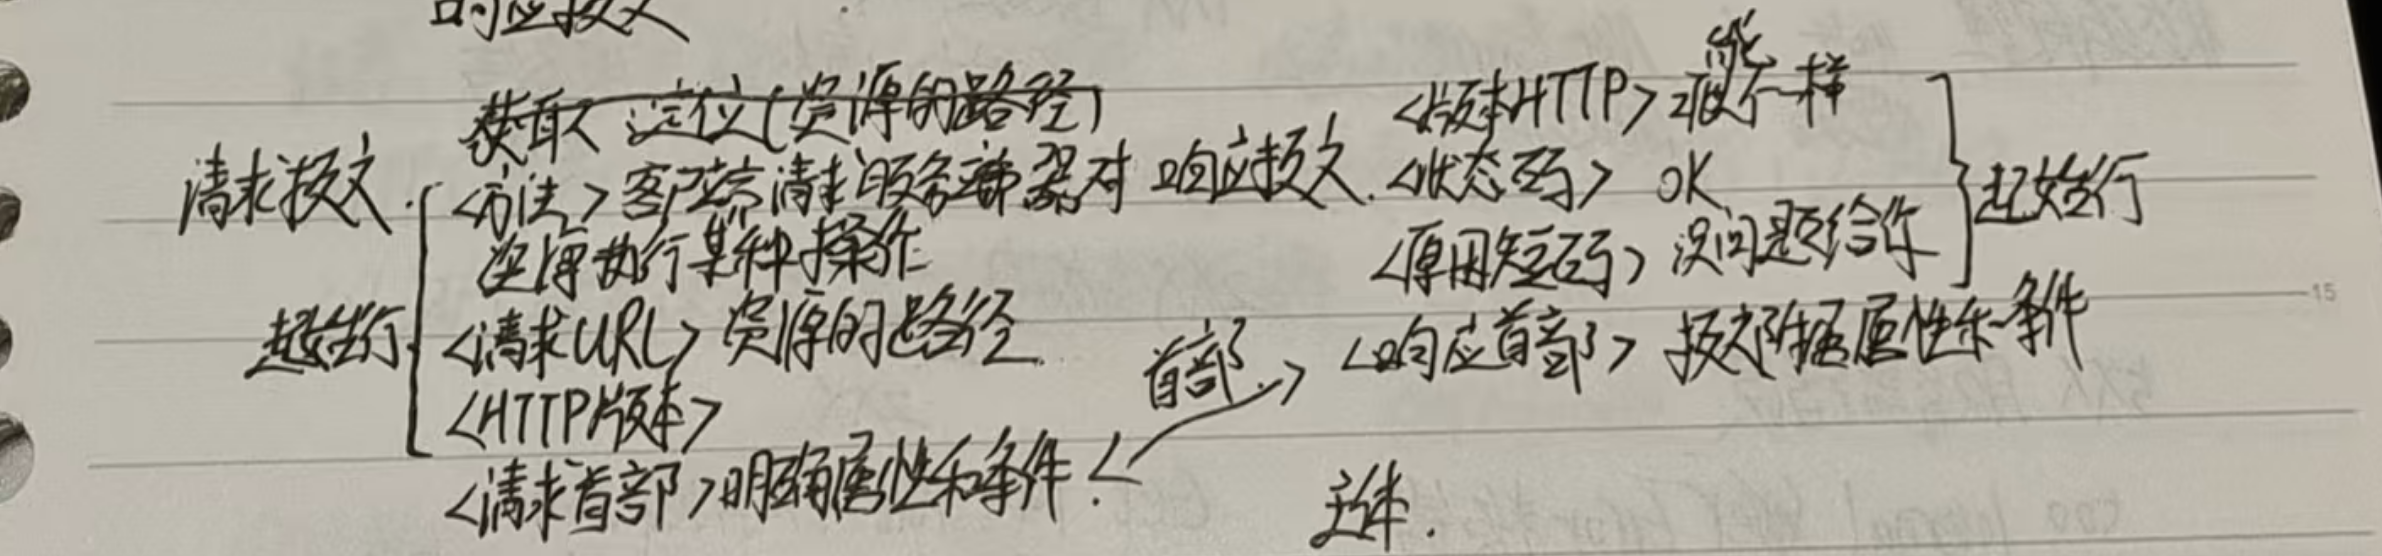 响应报文
获取 定位(资源的路径)
请求报文.
<方法> 客户端请求服务器对
资源执行某种操作
起始行.
<请求URL> 资源的路径.
<HTTP版本>
<请求首部> 明确属性和条件.
首部.
响应报文.
<版本HTTP> 能不一样
<状态码> OK
<原因短码> 没问题给你
起始行
<响应首部> 属性和条件
主体.
15